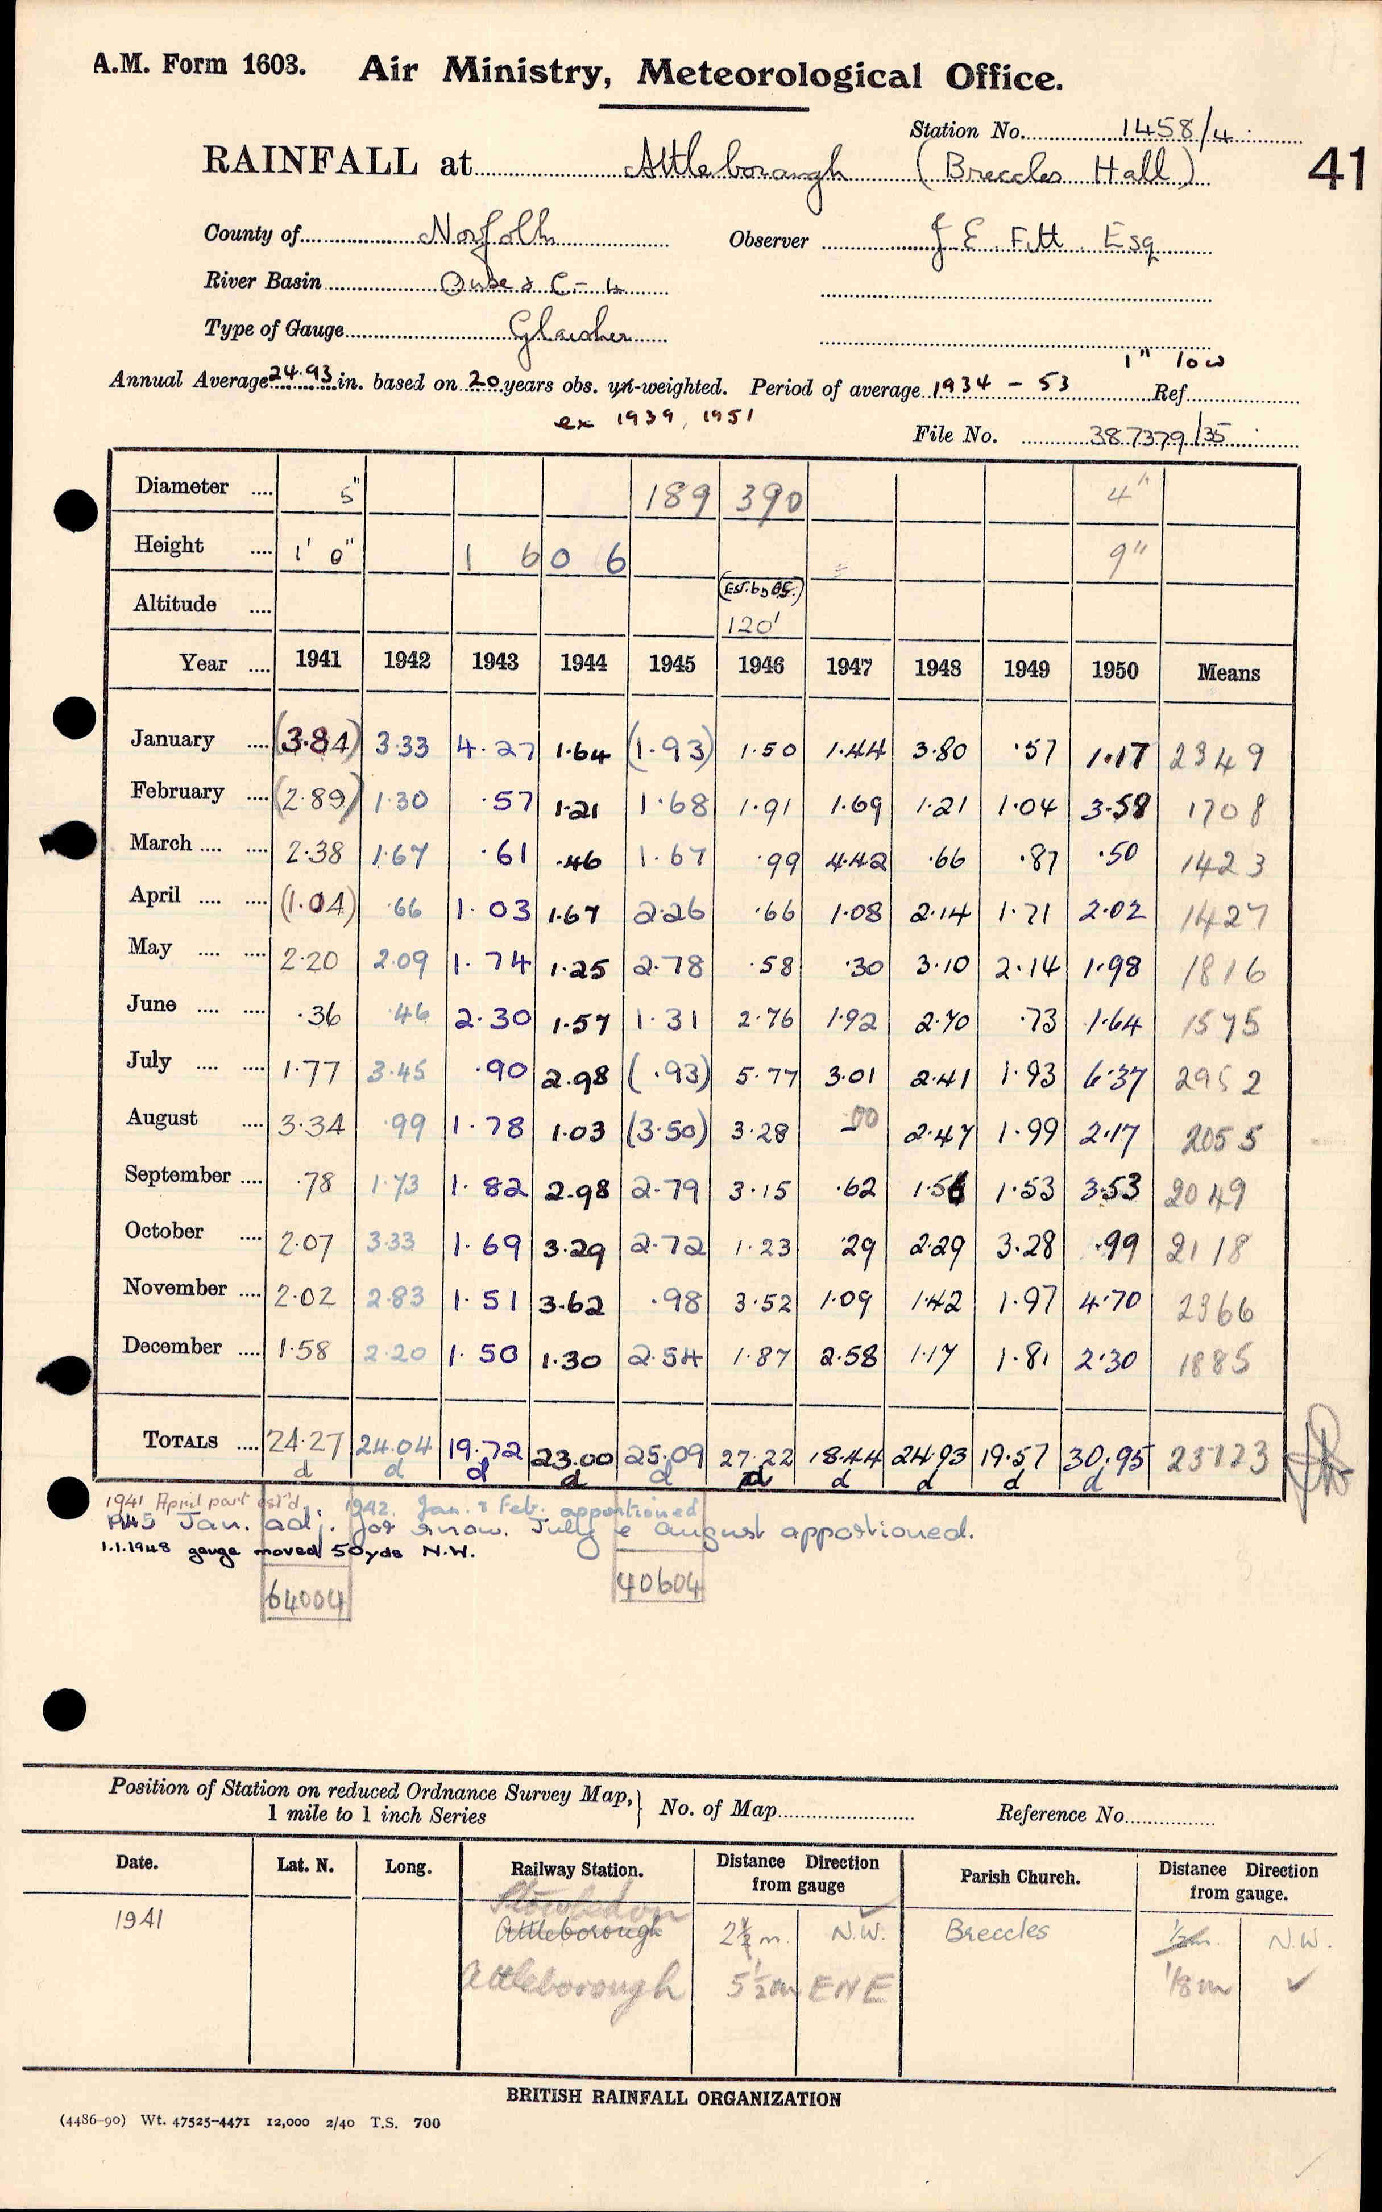 A.M. Form 1603. Air Ministry, Meteorological Office.
Station No. 1458/4
RAINFALL at Attleborough (Breccles Hall) 41
County of Norfolk Observer J E. Fitt. Esq
River Basin Ouse & C - 4
Type of Gauge Glaisher
1" low
Annual Average 24.93 in. based on 20 years obs. un-weighted. Period of average 1934 - 53 Ref.
ex 1939, 1951
File No. 387379/35
Diameter .... 5" 189 390 4"
Height .... 1' 0" 1 6 0 6 9"
Altitude .... (Est. by O.S.) 120'
Year .... 1941 1942 1943 1944 1945 1946 1947 1948 1949 1950 Means
January .... (3.84) 3.33 4.27 1.64 (1.93) 1.50 1.44 3.80 .57 1.17 2349
February .... (2.89) 1.30 .57 1.21 1.68 1.91 1.69 1.21 1.04 3.58 1708
March .... .... 2.38 1.67 .61 .46 1.67 .99 4.42 .66 .87 .50 1423
April .... .... (1.04) .66 1.03 1.67 2.26 .66 1.08 2.14 1.71 2.02 1427
May .... .... 2.20 2.09 1.74 1.25 2.78 .58 .30 3.10 2.14 1.98 1816
June .... .... .36 .46 2.30 1.57 1.31 2.76 1.92 2.70 .73 1.64 1575
July .... .... 1.77 3.45 .90 2.98 (.93) 5.77 3.01 2.41 1.93 6.37 2952
August .... 3.34 .99 1.78 1.03 (3.50) 3.28 .00 2.47 1.99 2.17 2055
September .... .78 1.73 1.82 2.98 2.79 3.15 .62 1.56 1.53 3.53 2049
October .... 2.07 3.33 1.69 3.29 2.72 1.23 .29 2.29 3.28 .99 2118
November .... 2.02 2.83 1.51 3.62 .98 3.52 1.09 1.42 1.97 4.70 2366
December .... 1.58 2.20 1.50 1.30 2.54 1.87 2.58 1.17 1.81 2.30 1885
TOTALS .... 24.27 24.04 19.72 23.00 25.09 27.22 18.44 24.93 19.57 30.95 23723
d d d d d d d d d d
1941 April part est'd. 1942. Jan. & Feb. apportioned
1945 Jan. adj. for snow. July & August apportioned.
1.1.1948 gauge moved 50yds N.W.
64004 40604
Position of Station on reduced Ordnance Survey Map, } No. of Map Reference No.
1 mile to 1 inch Series
Date. Lat. N. Long. Railway Station. Distance Direction from gauge Parish Church. Distance Direction from gauge.
Stow Bedon
1941 Attleborough 2¼ m. N.W. Breccles ½m. N.W.
Attleborough 5½m ENE 1/8 m ✓
BRITISH RAINFALL ORGANIZATION
(4486-90) Wt. 47525-4471 12,000 2/40 T.S. 700